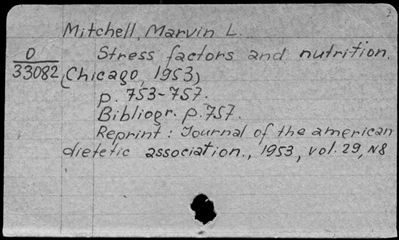 Mitchell, Marvin L.
O Stress factors and nutrition.
33082 (Chicago, 1953)
p. 753-757.
Bibliogr. p. 757.
Reprint: Journal of the american
dietetic association., 1953, vol. 29, N8